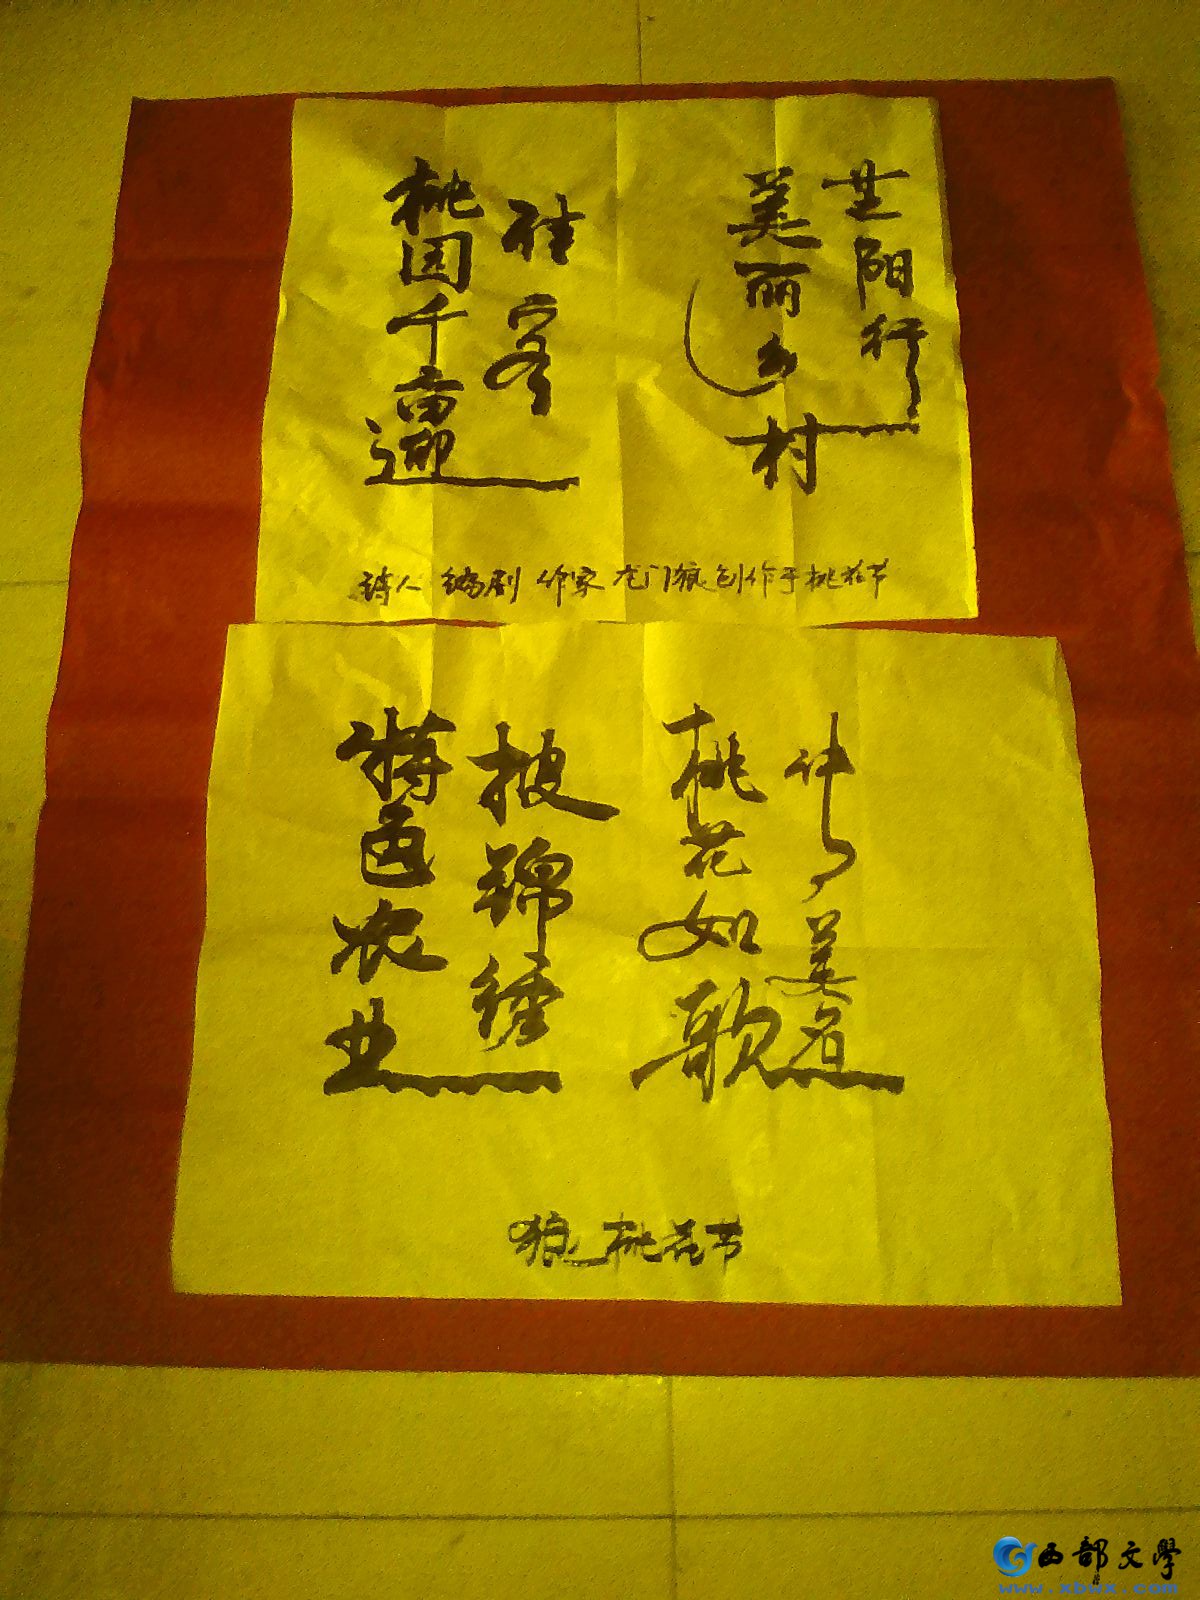 芷阳行
美丽乡村
桃园千亩迎
诗人 编剧 作家 龙门狼创作于桃花节
传美名
桃花如歌
披锦绣
特色农业
狼 桃花节
西部文学
www.xbwx.com